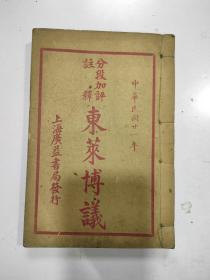 中華民國廿一年
分段加評
註釋
東萊博議
上海廣益書局發行